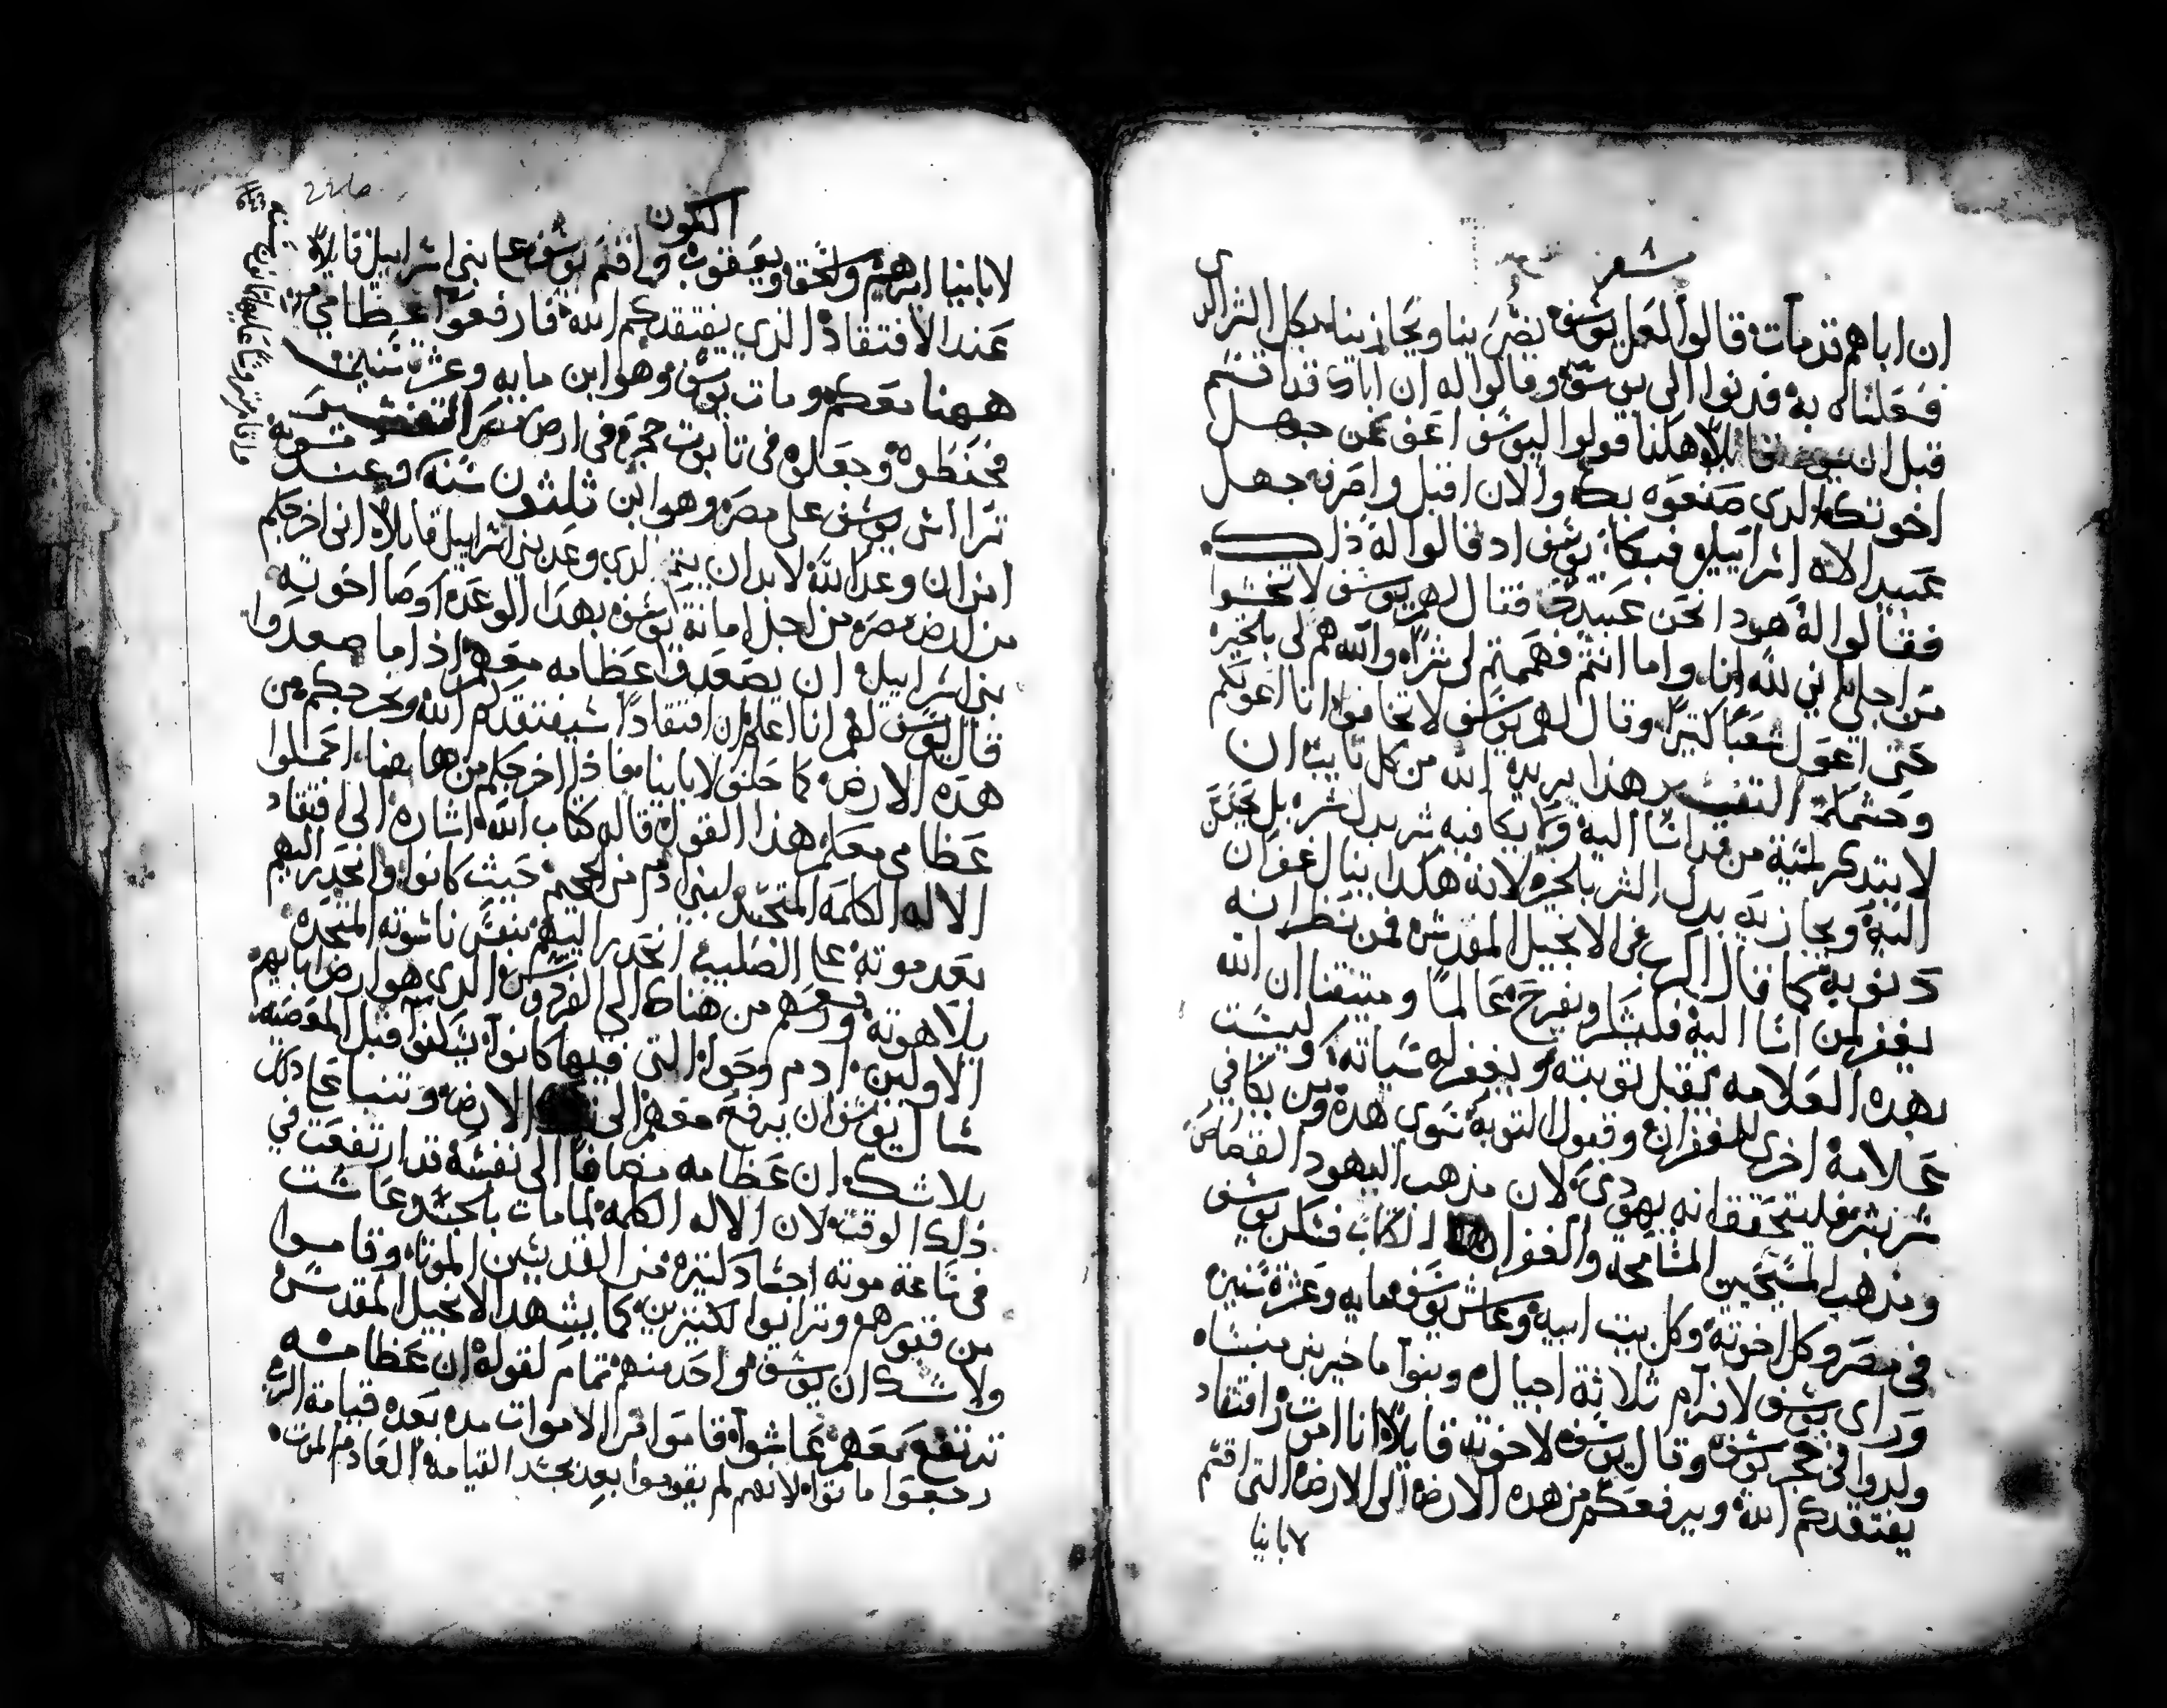 سفر
ان اباهم قد مات قالوا لعل يوسف يضر بنا ويجازينا بكل الشر الذي
فعلناه به فدنوا الى يوسف وقالوا له ان اباك قد اقسم
قبل ان قايلا هكذا قولوا ليوسف اعف عن جهل
اخوتك الدى صنعوه بك والان اقبل وامرنه جهل
عبيد الاه اسراييل فبكا يوسف اد قالوا له ذلك
فقالوا له هودا نحن عبيدك فقال لهم يوسف لا تخشوا
من اجل اني لله انا واما انتم فهممتم لى شرا والله هم لى بلخير
حتى اعول شعبا كتيرا وقال لهم يوسف لا تخافوا انا اعولكم
وحشمكم التفسير هذا يريده الله من كل تايب ان
لا يتدكر لسية من قد اسا اليه ولا يكافيه شر بدل شر بل يحنن
اليه ويجازيه بدل الشر بلخير لانه هكدا ينال غفران
دنوبه كما قال الرب فى الانجيل المقدس فمن نظر انه
يغفر لمن اسا اليه فليشكر ويفرح عالما ومتيقنا ان الله
بهده العلامه يقبل توبته ويغفر له سياته وليست
علامة اخرى للغفران وقبول التوبة سوى هده ومن يكافي
شر بشر فليتحقق انه يهودي لان مذهب اليهود القصاص
ومذهب المسيحيين المسامحه والغفران الكتاب فسكن يوسف
فى مصر وكل اخوته وكل بيت ابيه وعاش يوسف مايه وعشرة سنين
وراى يوسف لافرآم ثلاثة اجيال وبنوا ماخير بن منساه
ولدوا فى حجر يوسف وقال يوسف لاخوته قايلا انا اموت وافتقاد
يفتقدكم الله ويرفعكم من هده الارض الى الارض التى اقسم
لابانيا
التكون
226
لابانيا ابرهيم واسحق ويعقوب واقسم يوسف على بنى اسراييل قايلا
عند الافتقاد الذي يفتقدكم الله فارفعوا عظامي من
ههنا معكم ومات يوسف وهو ابن مايه وعشرة سنين
فحنطوه وجعلوه فى تابوت حجر فى ارض مصر التفسير
تراس يوسف على مصر وهو ابن ثلثون سنه وعند موته
ان وعد الله لا بد ان يتم لدي وعد بنى اسراييل قايلا انى اخرجكم
من ارض مصر من اجل امانة يوسف بهدا الوعد اوصا اخوته
بنى اسراييل ان يصعدوا عظامه معهم اذا ما صعدوا
قال يوسف لهم انا اعلم ان افتقادا سيفتقدكم الله ويخرجكم من
هده الارض كما حلف لابانيا فاذا اخرجكم من هاهنا احملوا
عظامي معكم هذا القول قاله كتاب الله اشاره الى افتقاد
الاله الكلمة المتجسد لبنى ادم من الجحيم حيث كانوا وانحدر اليهم
بعد موته على الصليب انحدر اليهم بنفس ناسوته المتحده
بلاهوته ورفعهم من هناك الى الفردوس الدى هو ارض ابايهم
الاولين ادم وحوا التى فيها كانوا يسكنوا قبل المعصيه
سال يوسف ان يرفع معهم الى الارض وتنبا على ذلك
بلا شك ان عظامه مضافا الى نفسه قد ارتفعت في
ذلك الوقت لان الاله الكلمه لما مات بالجسد عاشت
فى ساعة موته اجساد كتيره من القديسين الموتا وقاموا
من قبورهم وترانوا لكتيرين كما يشهد الانجيل المقدس
ولا شك ان يوسف واحد منهم تمام لقوله ان عظامه
ترتفع معهم عاشوا قاموا من الاموات مده بعده قيامة الرب
رجعوا ماتوا لانهم لم يقوموا بعد بجسد القيامة العادم الموت